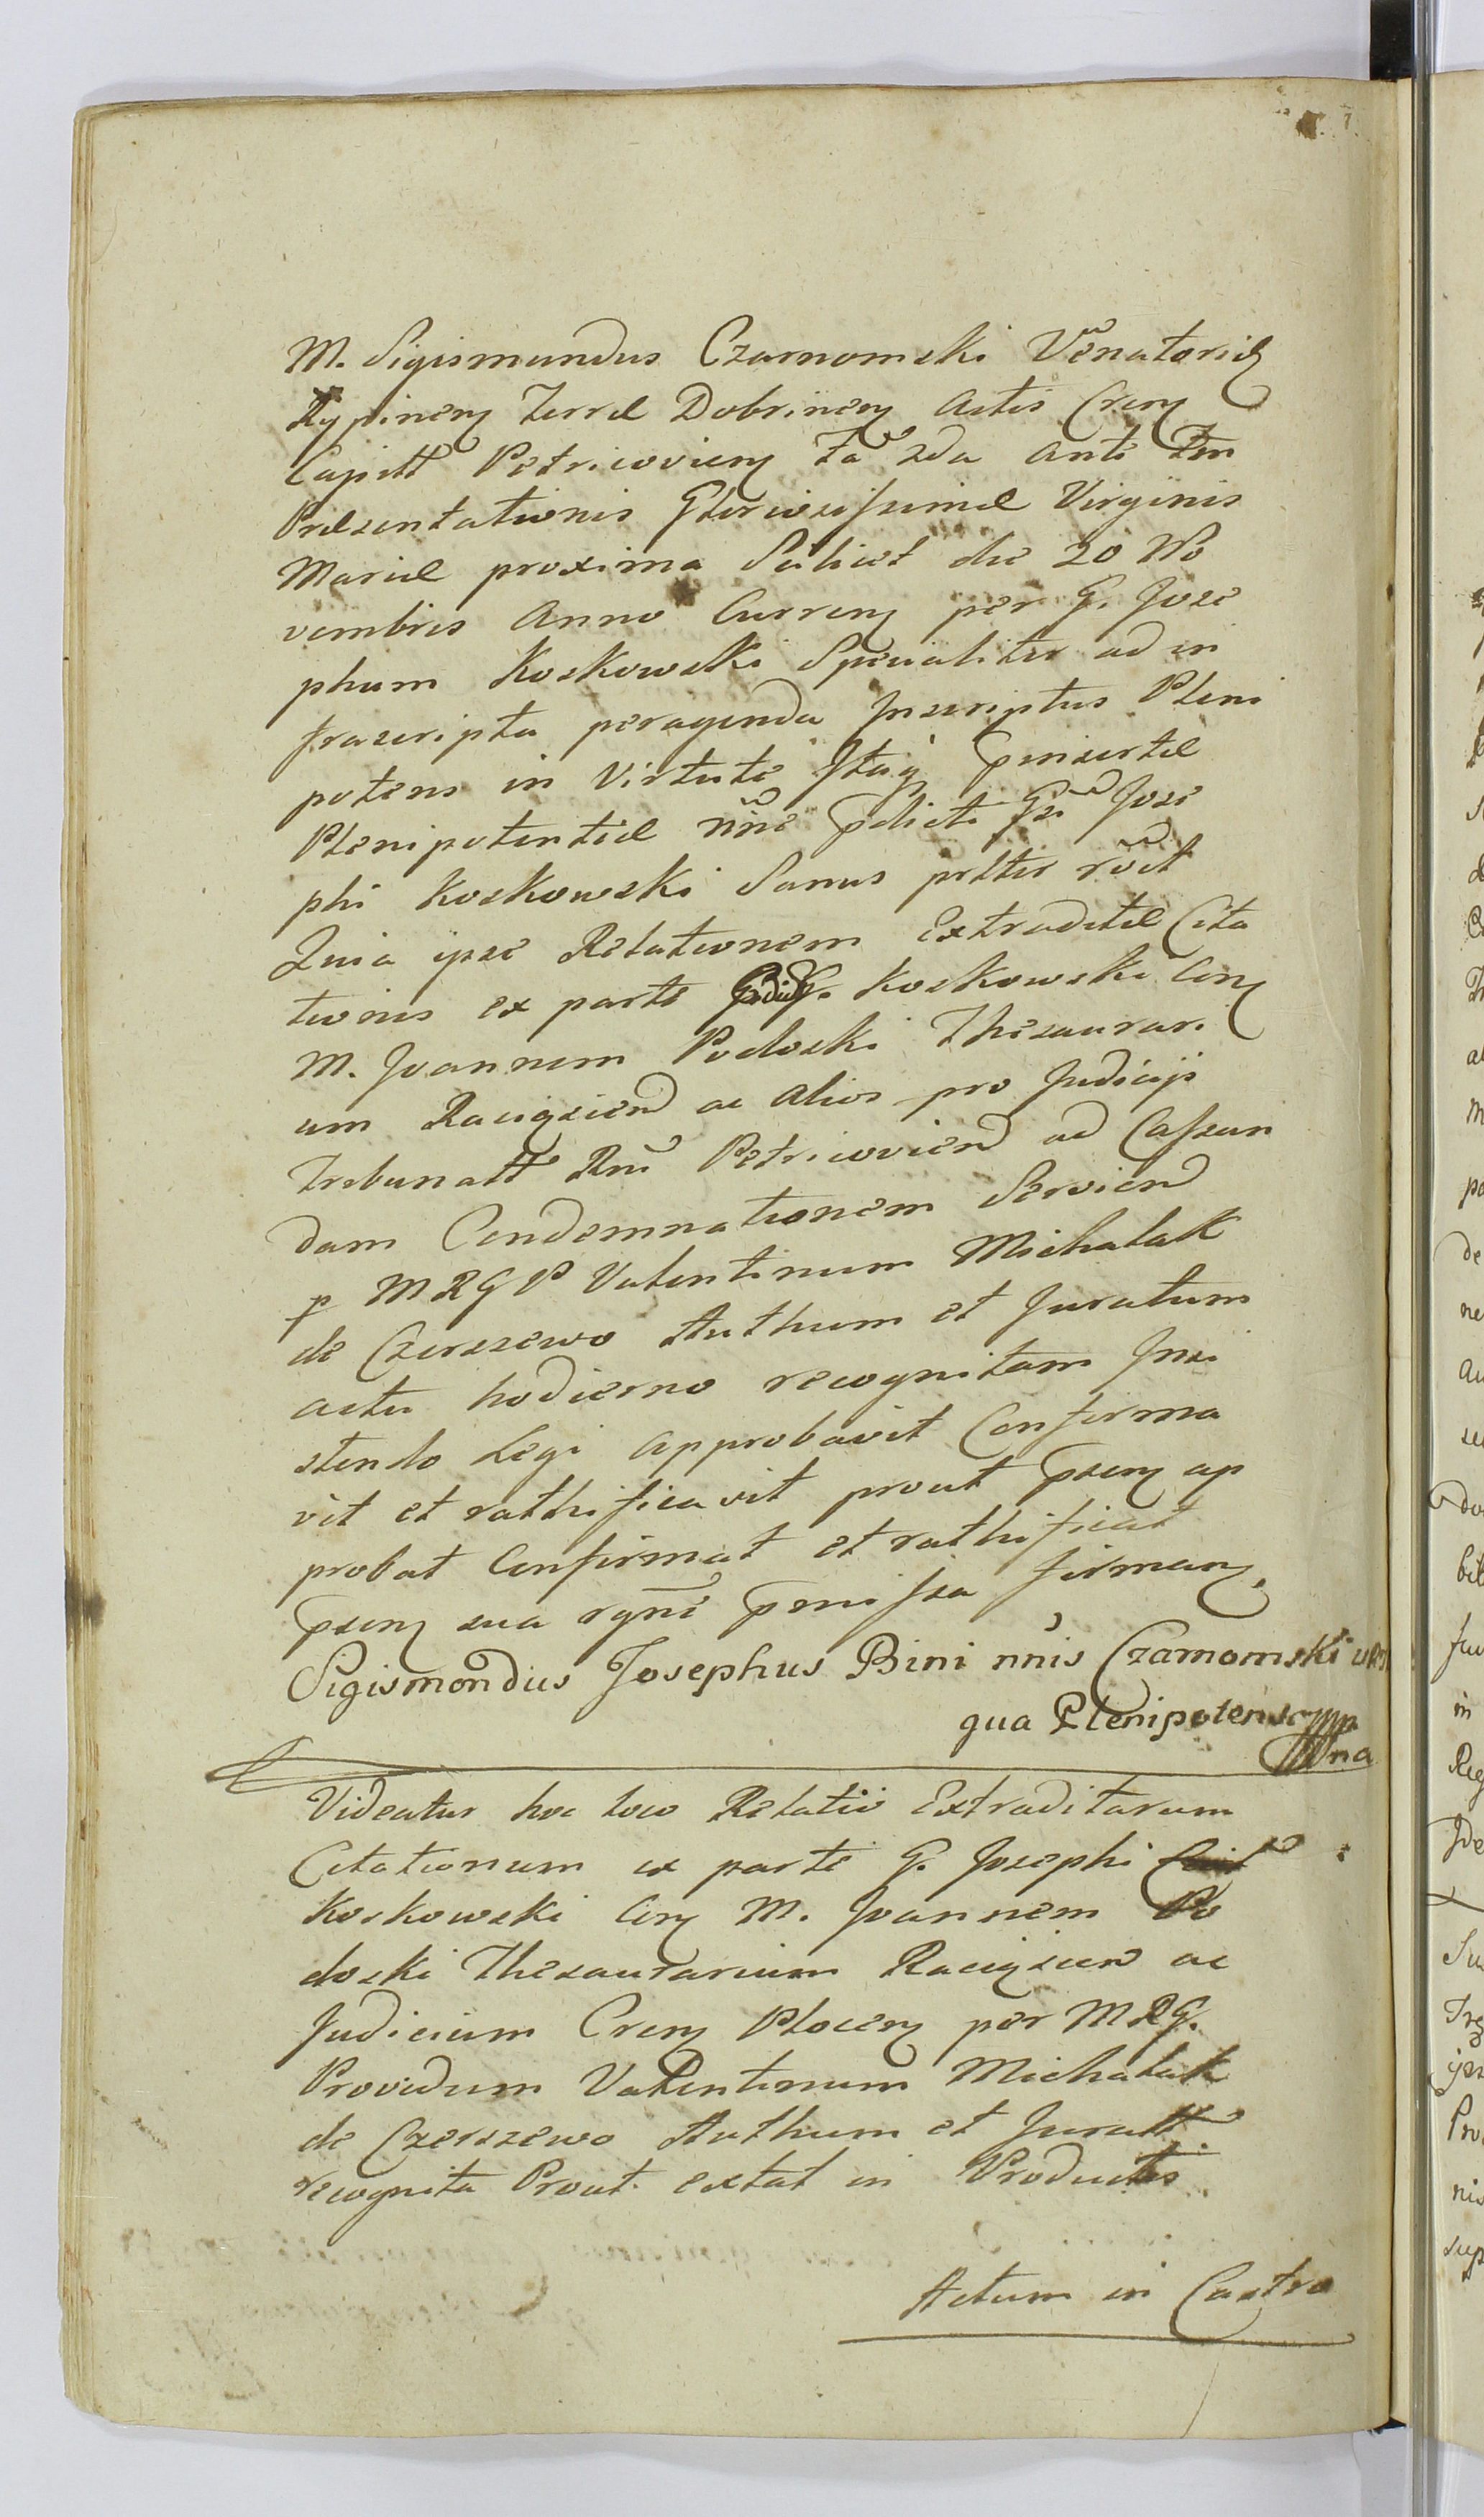 M. Sigismundus Czarnomski Venatorid
Rypinen Terræ Dobrinen Actis Cren
Capitt Petricovien fa 2da ante Fm
Præsentationis Gloriosissimæ Virginis
Mariæ proxima Scilicet die 20 No
vembris Anno Curren per G. Jose
phum Koskowski Specialiter ad in
frascripta peragenda Inscriptus Pleni
potens in Virtute
Plenipotentiæ pdicti Jose
phi Koskowski Sanus
Quia ipse Relationem Extraditæ Cita
tionis ex parte G. Koskowski Con
M. Joannem Podoski Thesaurari
um Raciązien ac Alios pro Judicijs
Trebunatt Rni Petricovien ad Cassan
dam Condemnationem Servien
p M R G P Valentinum Michalak
de Czerszewo Authum et Juratum
actu hodierno recognitam Insi
stendo Legi Approbavit Confirma
vit et rathificavit prout psen ap
probat Confirmat et rathificat
psen sua rgni pmissa firman.
Sigismondus Josephus Bini nnis Czarnomski
qua Plenipotens
Videatur hoc loco Relatio Extraditarum
Citationum ex parte G. Josephi
Koskowski Con M. Joannem Po
doski Thesaurarium Raciązien ac
Judicium Cren Plocen per M R G.
Providum Valentinum Michalak
de Czerszewo Authum et Juratt
recognita Prout extat in Productis
Actum in Castro